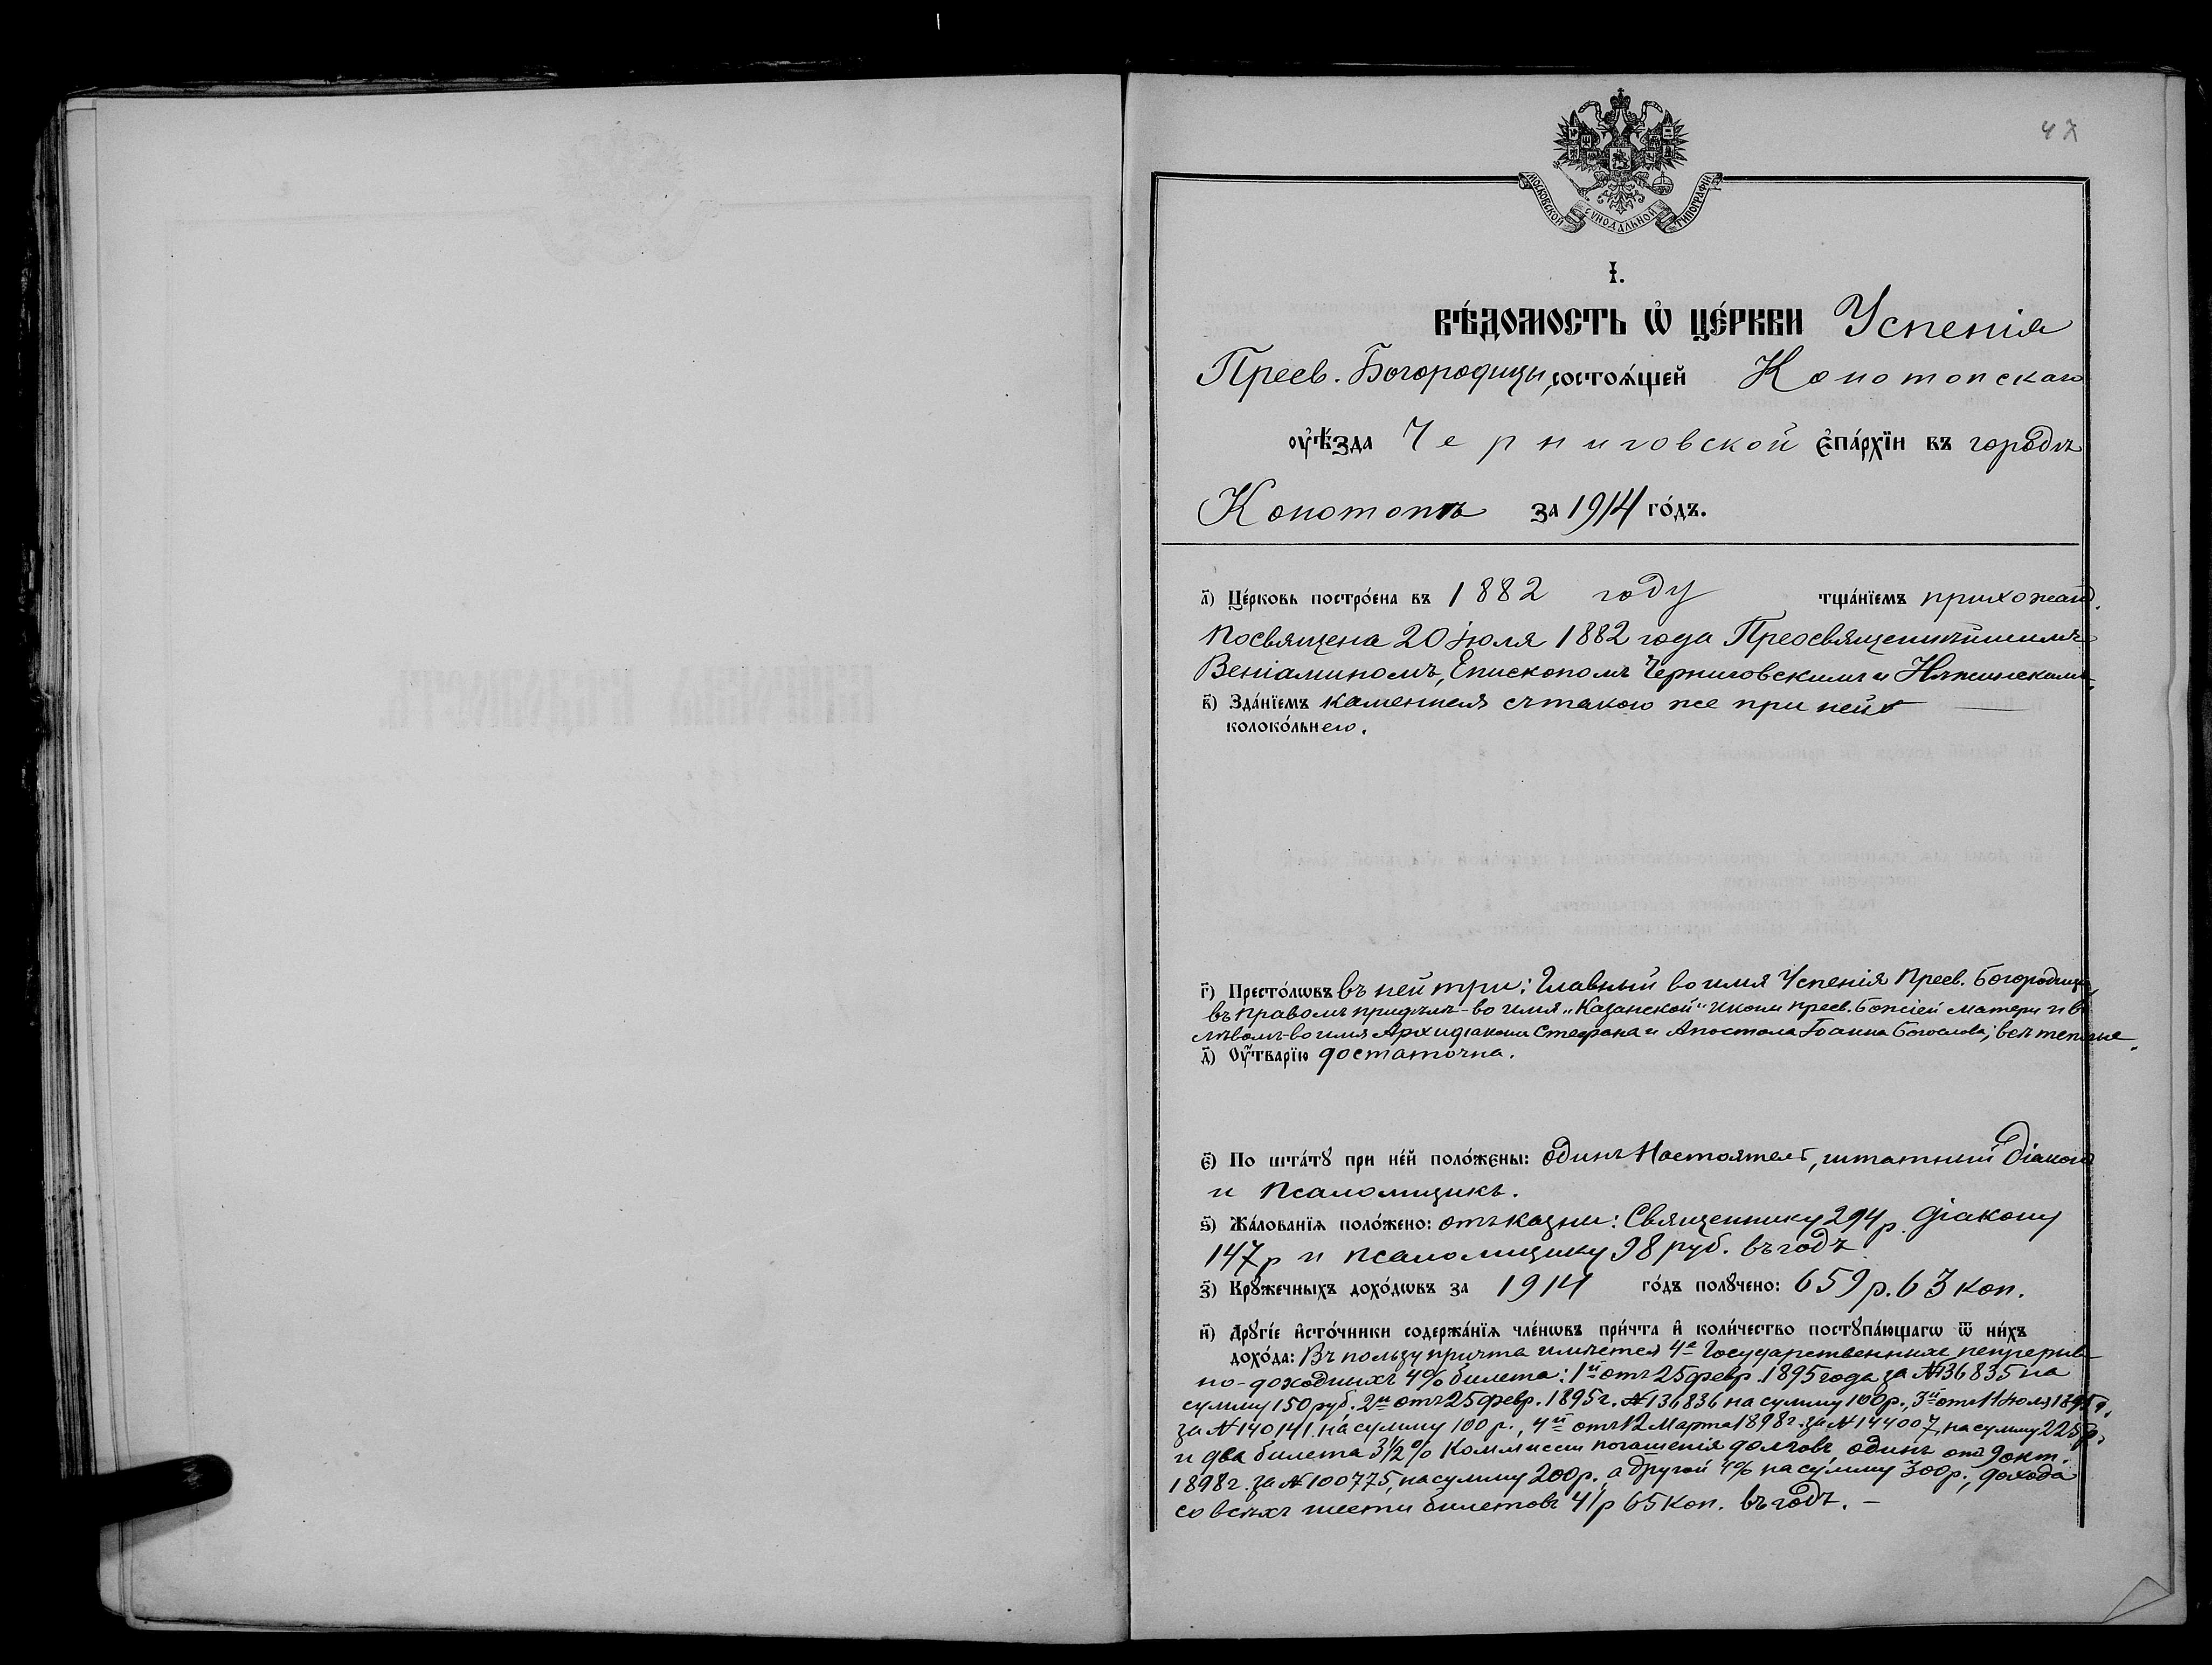 47
МОСКОВСКОЙ СѴНОДАЛЬНОЙ ТИПОГРАФІИ
І.
ВѢ́ДОМОСТЬ Ѡ҆ ЦЕ́РКВИ Успенія
Пресв. Богородицы, состоѧ́щей Конотопскаго
ᲂу҆ѣ́зда Черниговской є҆па́рхїи въ городѣ
Конотопѣ за 1914 го́дъ.
а҃) Це́рковь постро́ена въ 1882 году тща́нїемъ прихожанъ.
Посвящена 20 Іюля 1882 года Преосвященнѣйшимъ
Веніаминомъ, Епископомъ Черниговскимъ и Нѣжинскимъ.
в҃) Зда́нїемъ каменная съ такою же при ней
колоко́льнею.
г҃) Престо́лѡвъ въ ней три: Главный во имя Успенія Пресв. Богородицы,
въ правомъ придѣлѣ - во имя „Казанской" иконы Пресв. Божіей Матери и въ
лѣвомъ - во имя Архидіакона Стефана и Апостола Іоанна Богослова; всѣ теплые.
д҃) Оу҆́тварїю достаточна.
є҃) По шта́тꙋ при не́й поло́жены: одинъ Настоятель, штатный діаконъ
и Псаломщикъ.
ѕ҃) Жа́лованїѧ поло́жено: отъ казны: Священнику 294 р. діакону
147 р и псаломщику 98 руб. въ годъ
з҃) Крꙋ́жечныхъ дохо́дѡвъ за 1914 го́дъ полꙋ́чено: 659 р. 63 коп.
и҃) Дрꙋгі́е и҆сто́чники содержа́нїѧ чле́нѡвъ при́чта и҆ коли́чество постꙋпа́ющагѡ ѿ ни́хъ
дохо́да: Въ пользу причта имѣется 4е Государственныхъ непрерыв-
но-доходныхъ 4% билета: 1й отъ 25 февр. 1895 года за №136835 на
сумму 150 руб. 2й отъ 25 февр. 1895 г. №136836 на сумму 100 р., 3й отъ 11 Іюля 1895 г.
за №140141 на сумму 100 р., 4й отъ 12 Марта 1898 г. за №144007, на сумму 225 р.
и два билета 3½% Коммиссіи погашенія долговъ одинъ отъ 9 окт.
1898 г. за №100775, на сумму 200 р., а другой 4% на сумму 300 р., дохода
со всѣхъ шести билетовъ 41 р 65 коп. въ годъ. –